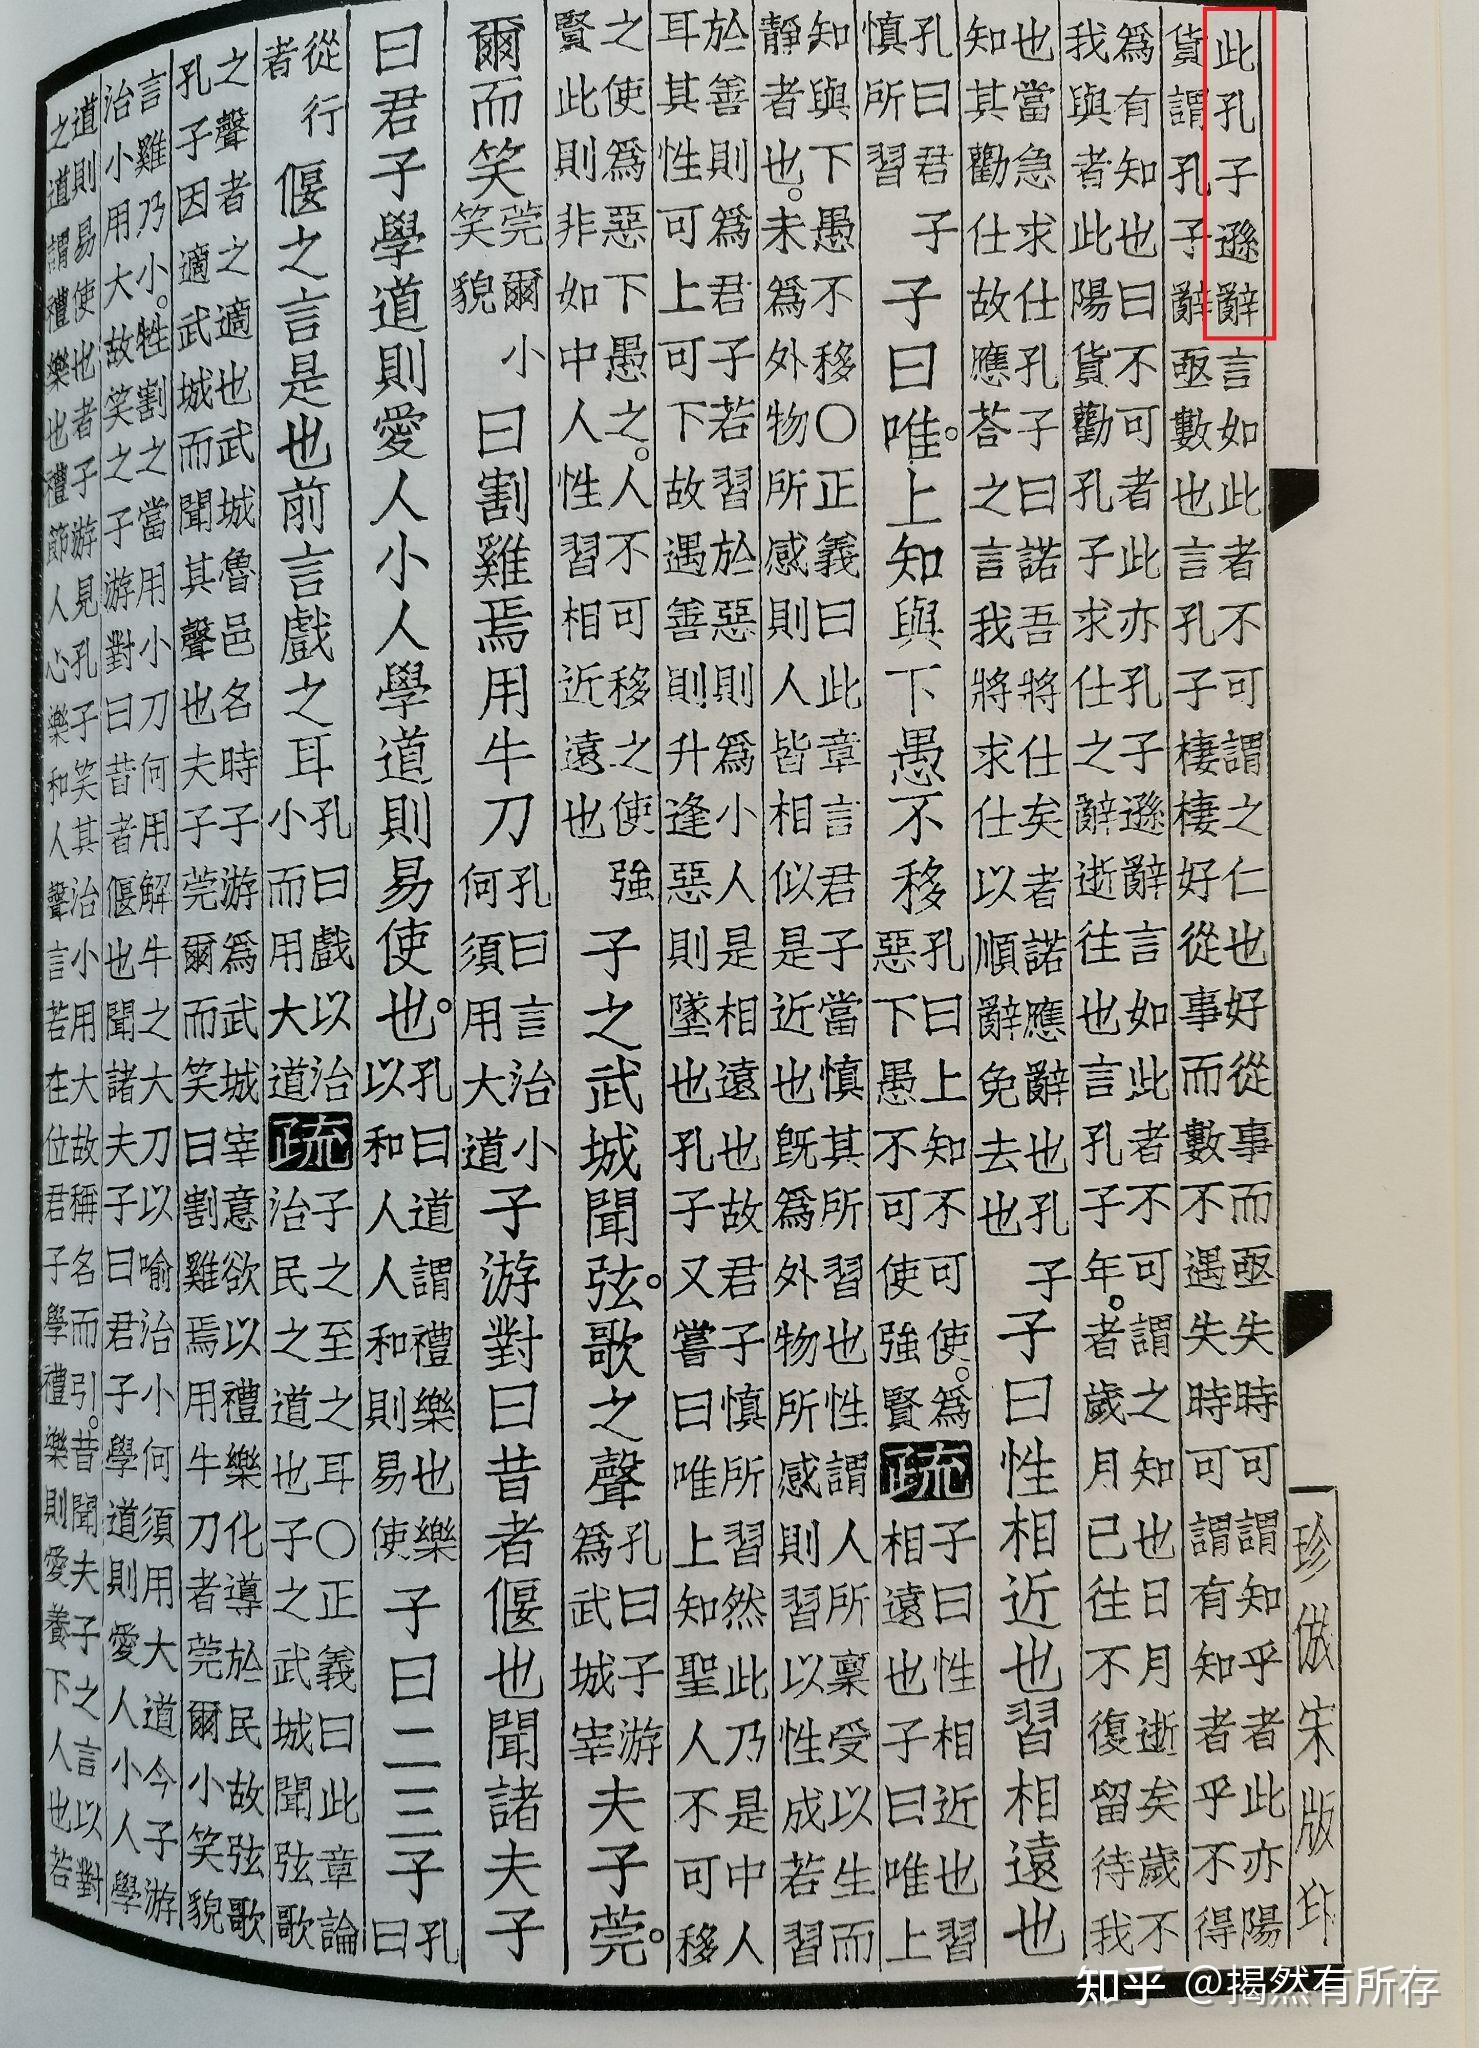 珍倣宋版印
此孔子遜辭言如此者不可謂之仁也好從事而亟失時可謂知乎者此亦陽
貨謂孔子辭亟數也言孔子棲棲好從事而數不遇失時可謂有知者乎不得
爲有知也曰不可者此亦孔子遜辭言如此者不可謂之知也日月逝矣歲不
我與者此陽貨勸孔子求仕之辭逝往也言孔子年。者歲月已往不復留待我
也當急求仕孔子曰諾吾將仕矣者諾應辭也孔子
知其勸仕故應荅之言我將求仕以順辭免去也
子曰性相近也習相遠也
孔曰君子
慎所習
子曰唯。上知與下愚不移
孔曰上知不可使。爲
惡下愚不可使強賢
疏
子曰性相近也習
相遠也子曰唯上
知與下愚不移○正義曰此章言君子當慎其所習也性謂人所稟受以生而
靜者也。未爲外物所感則人皆相似是近也既爲外物所感則習以性成若習
於善則爲君子若習於惡則爲小人是相遠也故君子慎所習然此乃是中人
耳其性可上可下故遇善則升逢惡則墜也孔子又嘗曰唯上知聖人不可移
之使爲惡下愚之。人不可移之使強
賢此則非如中人性習相近遠也
子之武城聞弦。歌之聲
孔曰子游
爲武城宰
夫子莞。
爾而笑
莞爾小
笑貌
曰割雞焉用牛刀
孔曰言治小
何須用大道
子游對曰昔者偃也聞諸夫子
曰君子學道則愛人小人學道則易使也。
孔曰道謂禮樂也樂
以和人人和則易使
子曰二三子
孔
曰
從行
者
偃之言是也前言戲之耳
孔曰戲以治
小而用大道
疏
子之至之耳○正義曰此章論
治民之道也子之武城聞弦歌
之聲者之適也武城魯邑名時子游爲武城宰意欲以禮樂化導於民故弦歌
孔子因適武城而聞其聲也夫子莞爾而笑曰割雞焉用牛刀者莞爾小笑貌
言雞乃小。牲割之當用小刀何用解牛之大刀以喻治小何須用大道今子游
治小用大故笑之子游對曰昔者偃也聞諸夫子曰君子學道則愛人小人學
道則易使也者子游見孔子笑其治小用大故稱名而引。昔聞夫子之言以對
之道謂禮樂也禮節人心樂和人聲言若在位君子學禮樂則愛養下人也若
知乎 @揭然有所存